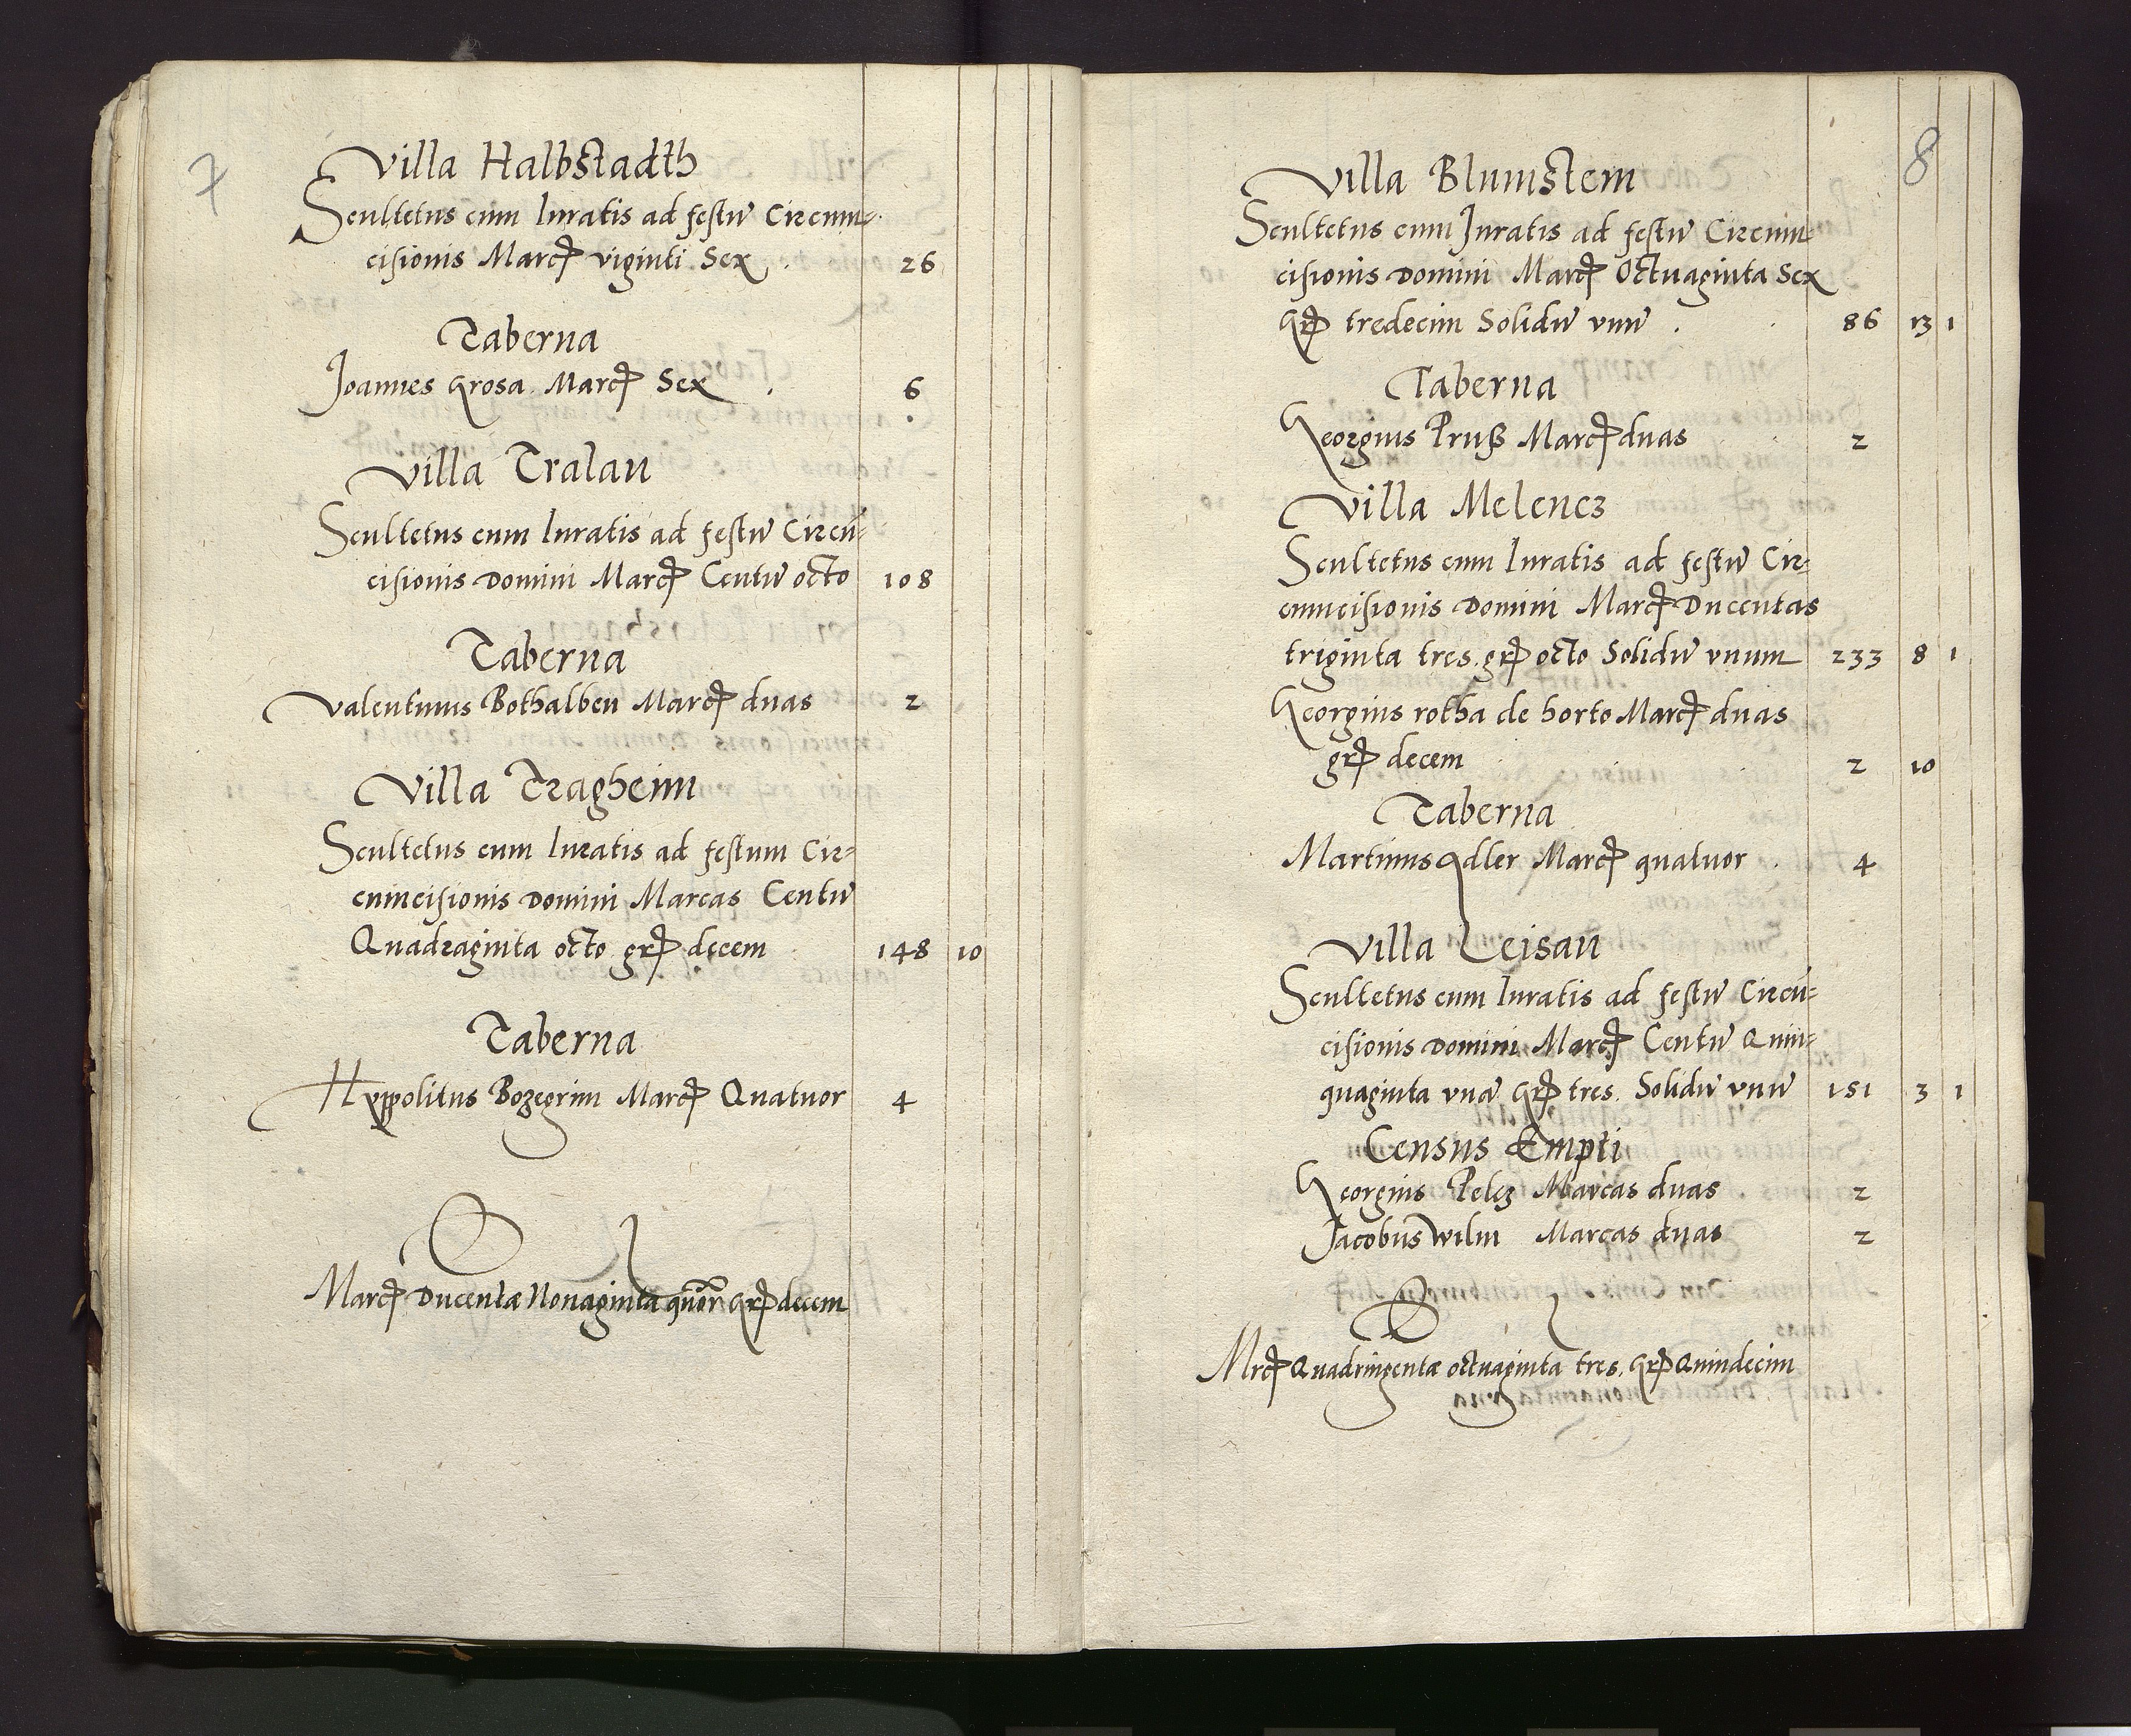 7
Villa Halbstadth
Scultetus cum Iuratis ad festũ Circum=
cisionis Marc̄ viginti Sex 26
Taberna
Joannes Grosa Marc̄ Sex 6
Villa Tralau
Scultetus cum Iuratis ad festũ Circũ=
cisionis Domini Marc̄ Centũ octo 108
Taberna
Valentinus Bothalben Marc̄ duas 2
Villa Tragheim
Scultetus cum Iuratis ad festum Cir=
cumcisionis Domini Marcas Centũ
Quadraginta octo gr̄ decem 148 10
Taberna
Hyppolitus Bozegrim Marc̄ Quatuor 4
Marc̄ Ducentæ Nonaginta quõr Gr̄ decem
8
Villa Blumstem
Scultetus cum Juratis ad festũ Circum
cisionis Domini Marc̄ Octuaginta Sex
Gr̄ tredecim Solidũ vnũ 86 13 1
Taberna
Georgius Pruß Marc̄ duas 2
Villa Melencz
Scultetus cum Iuratis ad festũ Cir=
cumcisionis Domini Marc̄ Ducentas
triginta tres gr̄ octo Solidũ vnum 233 8 1
Georgius rotha de horto Marc̄ duas
gr̄ decem 2 10
Taberna
Martinus Adler Marc̄ quatuor 4
Villa Leisau
Scultetus cum Iuratis ad festũ Circũ=
cisionis Domini Marc̄ Centũ Quin=
quaginta vnã Gr̄ tres Solidũ vnũ 151 3 1
Census Empti
Georgius Pelcz Marcas duas 2
Jacobus Wilm Marcas duas 2
Mrc̄ Quadringentæ octuaginta tres Gr̄ Quindecim